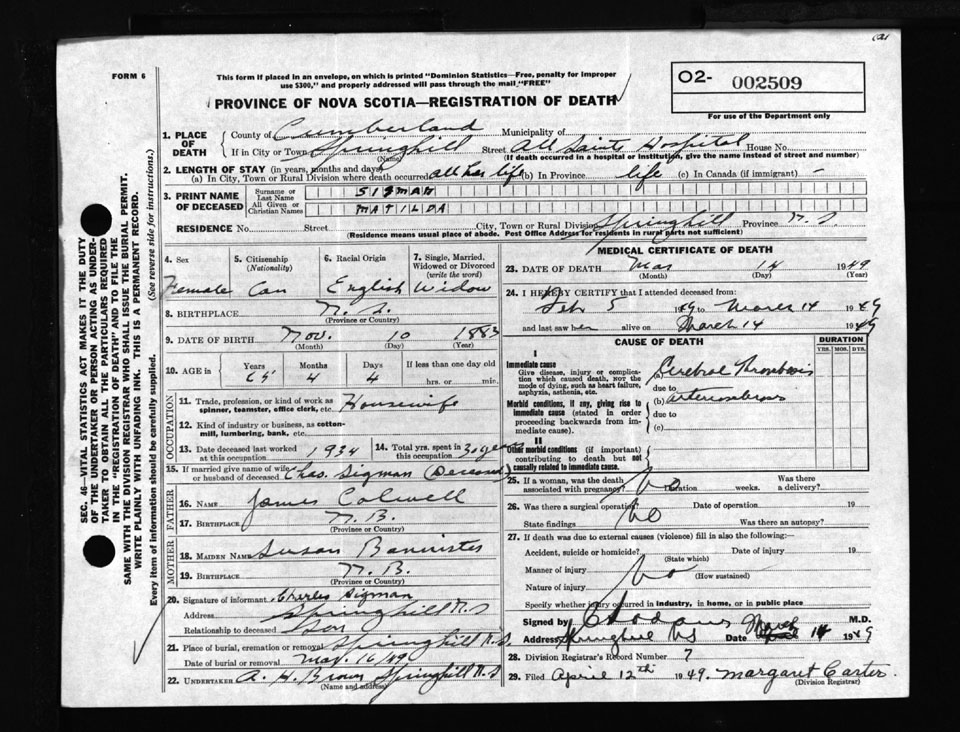 FORM 6
This form if placed in an envelope, on which is printed "Dominion Statistics—Free, penalty for improper
use $300," and properly addressed will pass through the mail "FREE"
O2- 002509
For use of the Department only
PROVINCE OF NOVA SCOTIA—REGISTRATION OF DEATH
SEC. 46—VITAL STATISTICS ACT MAKES IT THE DUTY
OF THE UNDERTAKER OR PERSON ACTING AS UNDER-
TAKER TO OBTAIN ALL THE PARTICULARS REQUIRED
IN THE "REGISTRATION OF DEATH" AND TO FILE THE
SAME WITH THE DIVISION REGISTRAR WHO SHALL ISSUE THE BURIAL PERMIT.
WRITE PLAINLY WITH UNFADING INK. THIS IS A PERMANENT RECORD.
Every item of information should be carefully supplied. (See reverse side for instructions.)
1. PLACE OF DEATH
County of Cumberland Municipality of
If in City or Town Springhill Street All Saints Hospital House No.
(Name) (If death occurred in a hospital or institution, give the name instead of street and number)
2. LENGTH OF STAY (in years, months and days)
(a) In City, Town or Rural Division where death occurred all her life (b) In Province life (c) In Canada (if immigrant) -
3. PRINT NAME OF DECEASED
Surname or Last Name SIGMAN
All Given or Christian Names MATILDA
RESIDENCE No. Street City, Town or Rural Division Springhill Province N.S
(Residence means usual place of abode. Post Office Address for residents in rural parts not sufficient)
4. Sex
Female
5. Citizenship (Nationality)
Can
6. Racial Origin
English
7. Single, Married, Widowed or Divorced (write the word)
Widow
8. BIRTHPLACE N.S.
(Province or Country)
9. DATE OF BIRTH Nov. 10 1883
(Month) (Day) (Year)
10. AGE in
Years Months Days If less than one day old
65 4 4 hrs. or min.
OCCUPATION
11. Trade, profession, or kind of work as spinner, teamster, office clerk, etc. Housewife
12. Kind of industry or business, as cotton-mill, lumbering, bank, etc.
13. Date deceased last worked at this occupation 1934
14. Total yrs. spent in this occupation 30 years
15. If married give name of wife or husband of deceased Chas. Sigman (Deceased)
FATHER
16. Name James Colwell
17. Birthplace N.B.
(Province or Country)
MOTHER
18. Maiden Name Susan Bannister
19. Birthplace N.B.
(Province or Country)
20. Signature of informant Charles Sigman
Address Springhill N.S
Relationship to deceased Son
21. Place of burial, cremation or removal Springhill N.S.
Date of burial or removal Mar. 16/49
22. UNDERTAKER A. H. Brown Springhill N.S
(Name and address)
MEDICAL CERTIFICATE OF DEATH
23. DATE OF DEATH Mar 14 1949
(Month) (Day)
24. I HEREBY CERTIFY that I attended deceased from:
Feb 5 1949 to March 14 1949
and last saw her alive on March 14 1949
CAUSE OF DEATH
DURATION
YRS. MOS. DYS.
I
Immediate cause
Give disease, injury or complication which caused death, not the mode of dying, such as heart failure, asphyxia, asthenia, etc.
(a) Cerebral Thrombosis
due to
Morbid conditions, if any, giving rise to immediate cause (stated in order proceeding backwards from immediate cause).
(b)
due to
(c)
II
Other morbid conditions (if important) contributing to death but not causally related to immediate cause.
25. If a woman, was the death associated with pregnancy? No Duration weeks. Was there a delivery?
26. Was there a surgical operation? No Date of operation 19
State findings Was there an autopsy?
27. If death was due to external causes (violence) fill in also the following:—
Accident, suicide or homicide? Date of injury 19
(State which)
Manner of injury No
(How sustained)
Nature of injury
Specify whether injury occurred in industry, in home, or in public place
Signed by M.D.
Address Springhill NS Date March 14 1949
28. Division Registrar's Record Number 7
29. Filed April 12th 1949. Margaret Carter
(Division Registrar)